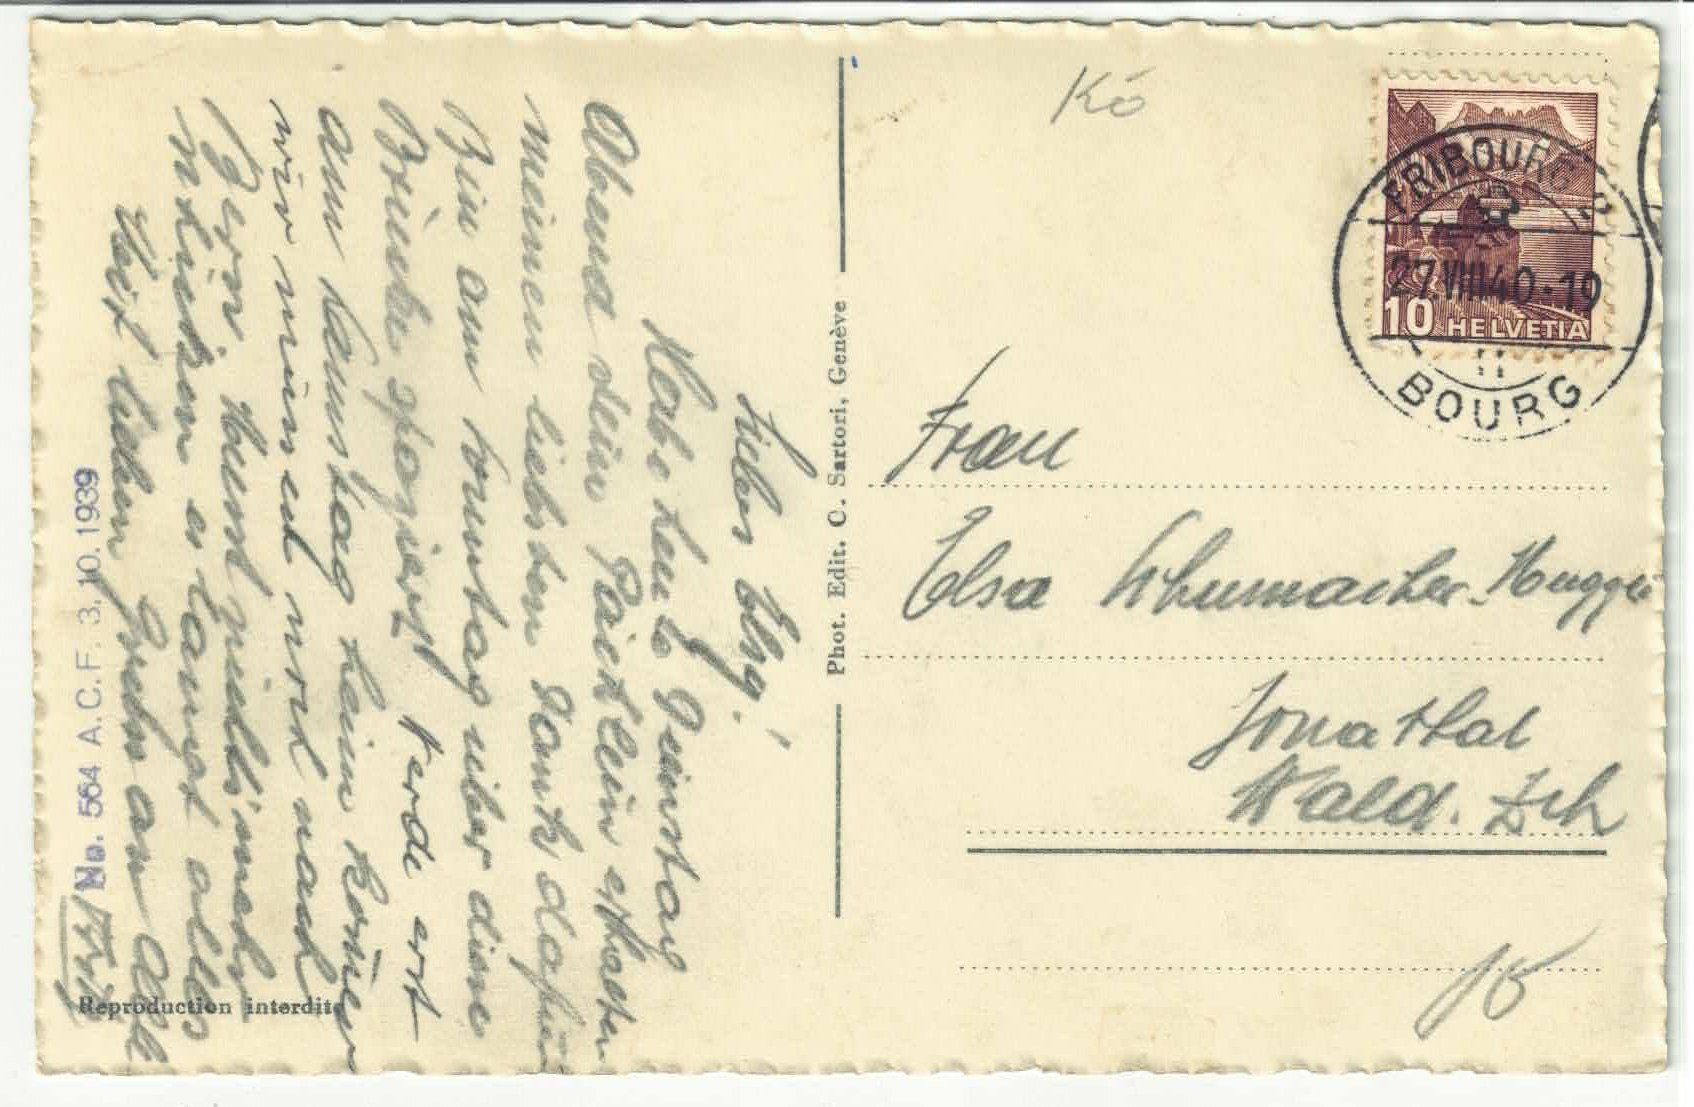 Liebes Elsy!
Habe heute Dienstag
Abend dein Päcklein erhalten
meinen liebsten Dank dafür
Bin am Sonntag über diese
Brücke spaziert. Werde erst
am Samstag heim kommen
wir müssen noch nach
Bern. Sonst nichts mehr
schicken es langt alles
Seit lieben Grüsse an alle
No. 564 A. C. F. 3. 10. 1939
Reproduction interdite
Phot. Edit. O. Sartori, Genève
Kó
FRIBOURG 2
27.VIII.40-19
BOURG
10 HELVETIA
Frau
Elsa Schumacher-Huggi
Jonathal
Wald. Zch
15